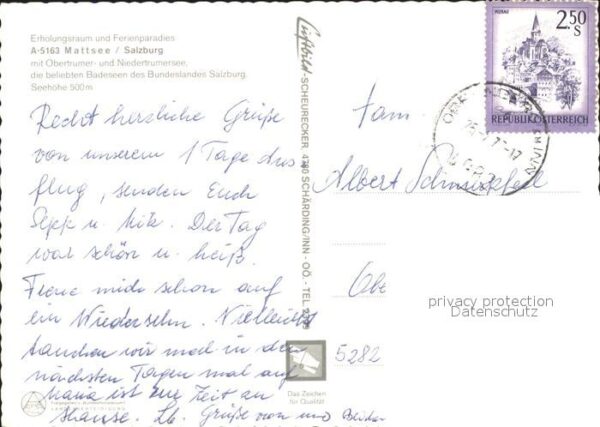 Erholungsraum und Ferienparadies
A-5163 Mattsee / Salzburg
mit Obertrumer- und Niedertrumersee,
die beliebten Badeseen des Bundeslandes Salzburg.
Seehöhe 500m
Recht herzliche Grüße
von unserem 1 Tage Aus
flug, senden Euch
Sepp u. Mitz. Der Tag
war schön u. heiß.
Freue mich schon auf
ein Wiedersehn. Vielleicht
tauchen wir mal in den
nächsten Tagen mal auf
Maria ist zur Zeit zu
Hause. Lb. Grüße von uns Beiden
Luftbild-SCHEURECKER, 4780 SCHÄRDING/INN - OÖ. - TEL
Das Zeichen
für Qualität
MURAU
2.50
S
REPUBLIK ÖSTERREICH
Fam.
Albert
Obe
5282
privacy protection
Datenschutz